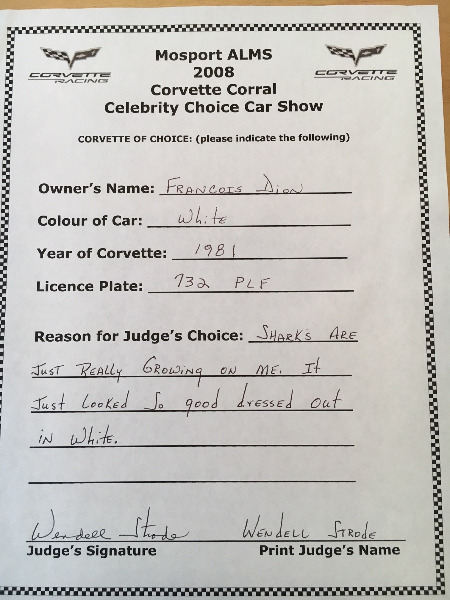 CORVETTE
RACING
CORVETTE
RACING
Mosport ALMS
2008
Corvette Corral
Celebrity Choice Car Show
CORVETTE OF CHOICE: (please indicate the following)
Owner's Name: FRANCOIS DION
Colour of Car: White
Year of Corvette: 1981
Licence Plate: 732 PLF
Reason for Judge's Choice: SHARKS ARE
JUST REALLY GROWING ON ME. It
Just Looked So good dressed out
in White.
Wendell Strode WENDELL STRODE
Judge's Signature Print Judge's Name